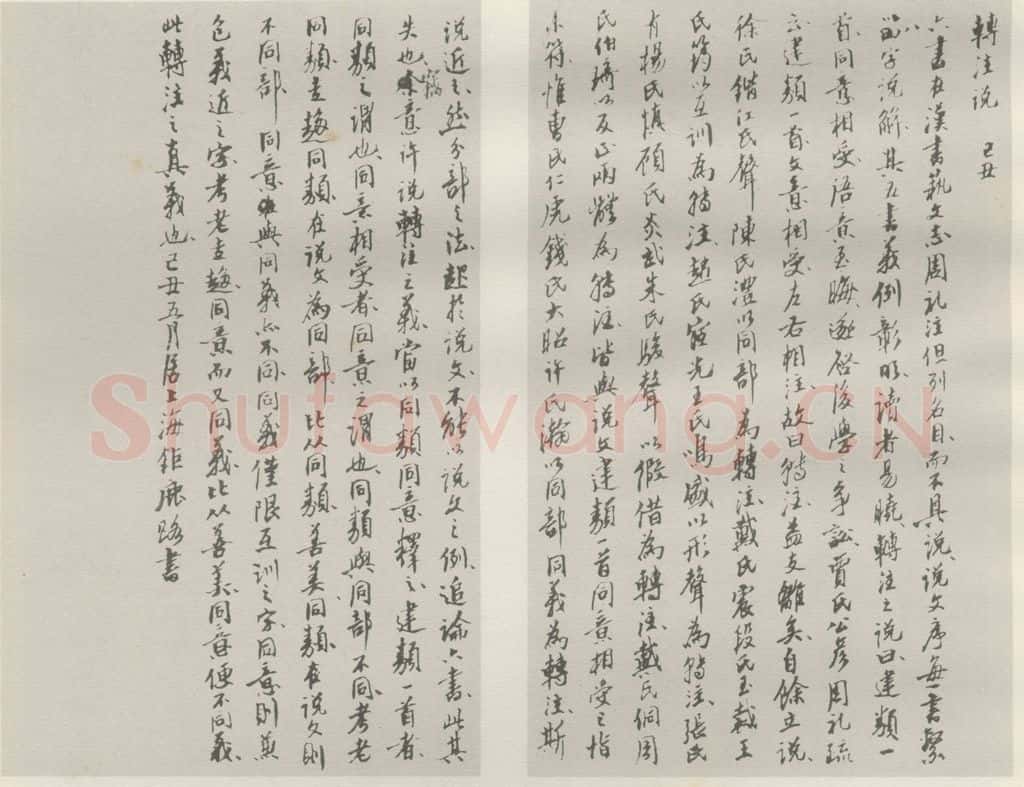 轉注说 己丑
六書在漢書藝文志周礼注但列名目而不具说说文序每一書繋
以八字说解其五書義例彰明读者易曉轉注之说曰建類一
首同意相受语意至晦遂啓後學之争訟賈氏公彦周礼疏
云建類一首文意相受左右相注故曰轉注益支離矣自餘立说
徐氏鍇江氏聲陳氏澧以同部為轉注戴氏震段氏玉裁王
氏筠以互训為轉注趙氏宧光王氏鳴盛以形聲為轉注張氏
有楊氏慎顧氏炎武朱氏駿聲以假借為轉注戴氏侗周
氏伯琦以反正兩體為轉注皆與说文建類一首同意相受之恉
不符惟曹氏仁虎錢氏大昭许氏瀚以同部同義為轉注斯
说近之然分部之法起於说文不能以说文之例追論六書此其
失也竊意许说轉注之義當以同類同意釋之建類一首者
同類之謂也同意相受者同意之謂也同類與同部不同考老
同類走趨同類在说文為同部比从同類善美同類在说文則
不同部同意與同義亦不同同義僅限互训之字同意則兼
包義近之字考老走趨同意而又同義比从善美同意便不同義
此轉注之真義也己丑五月居上海鉅鹿路書
Shufawang.CN